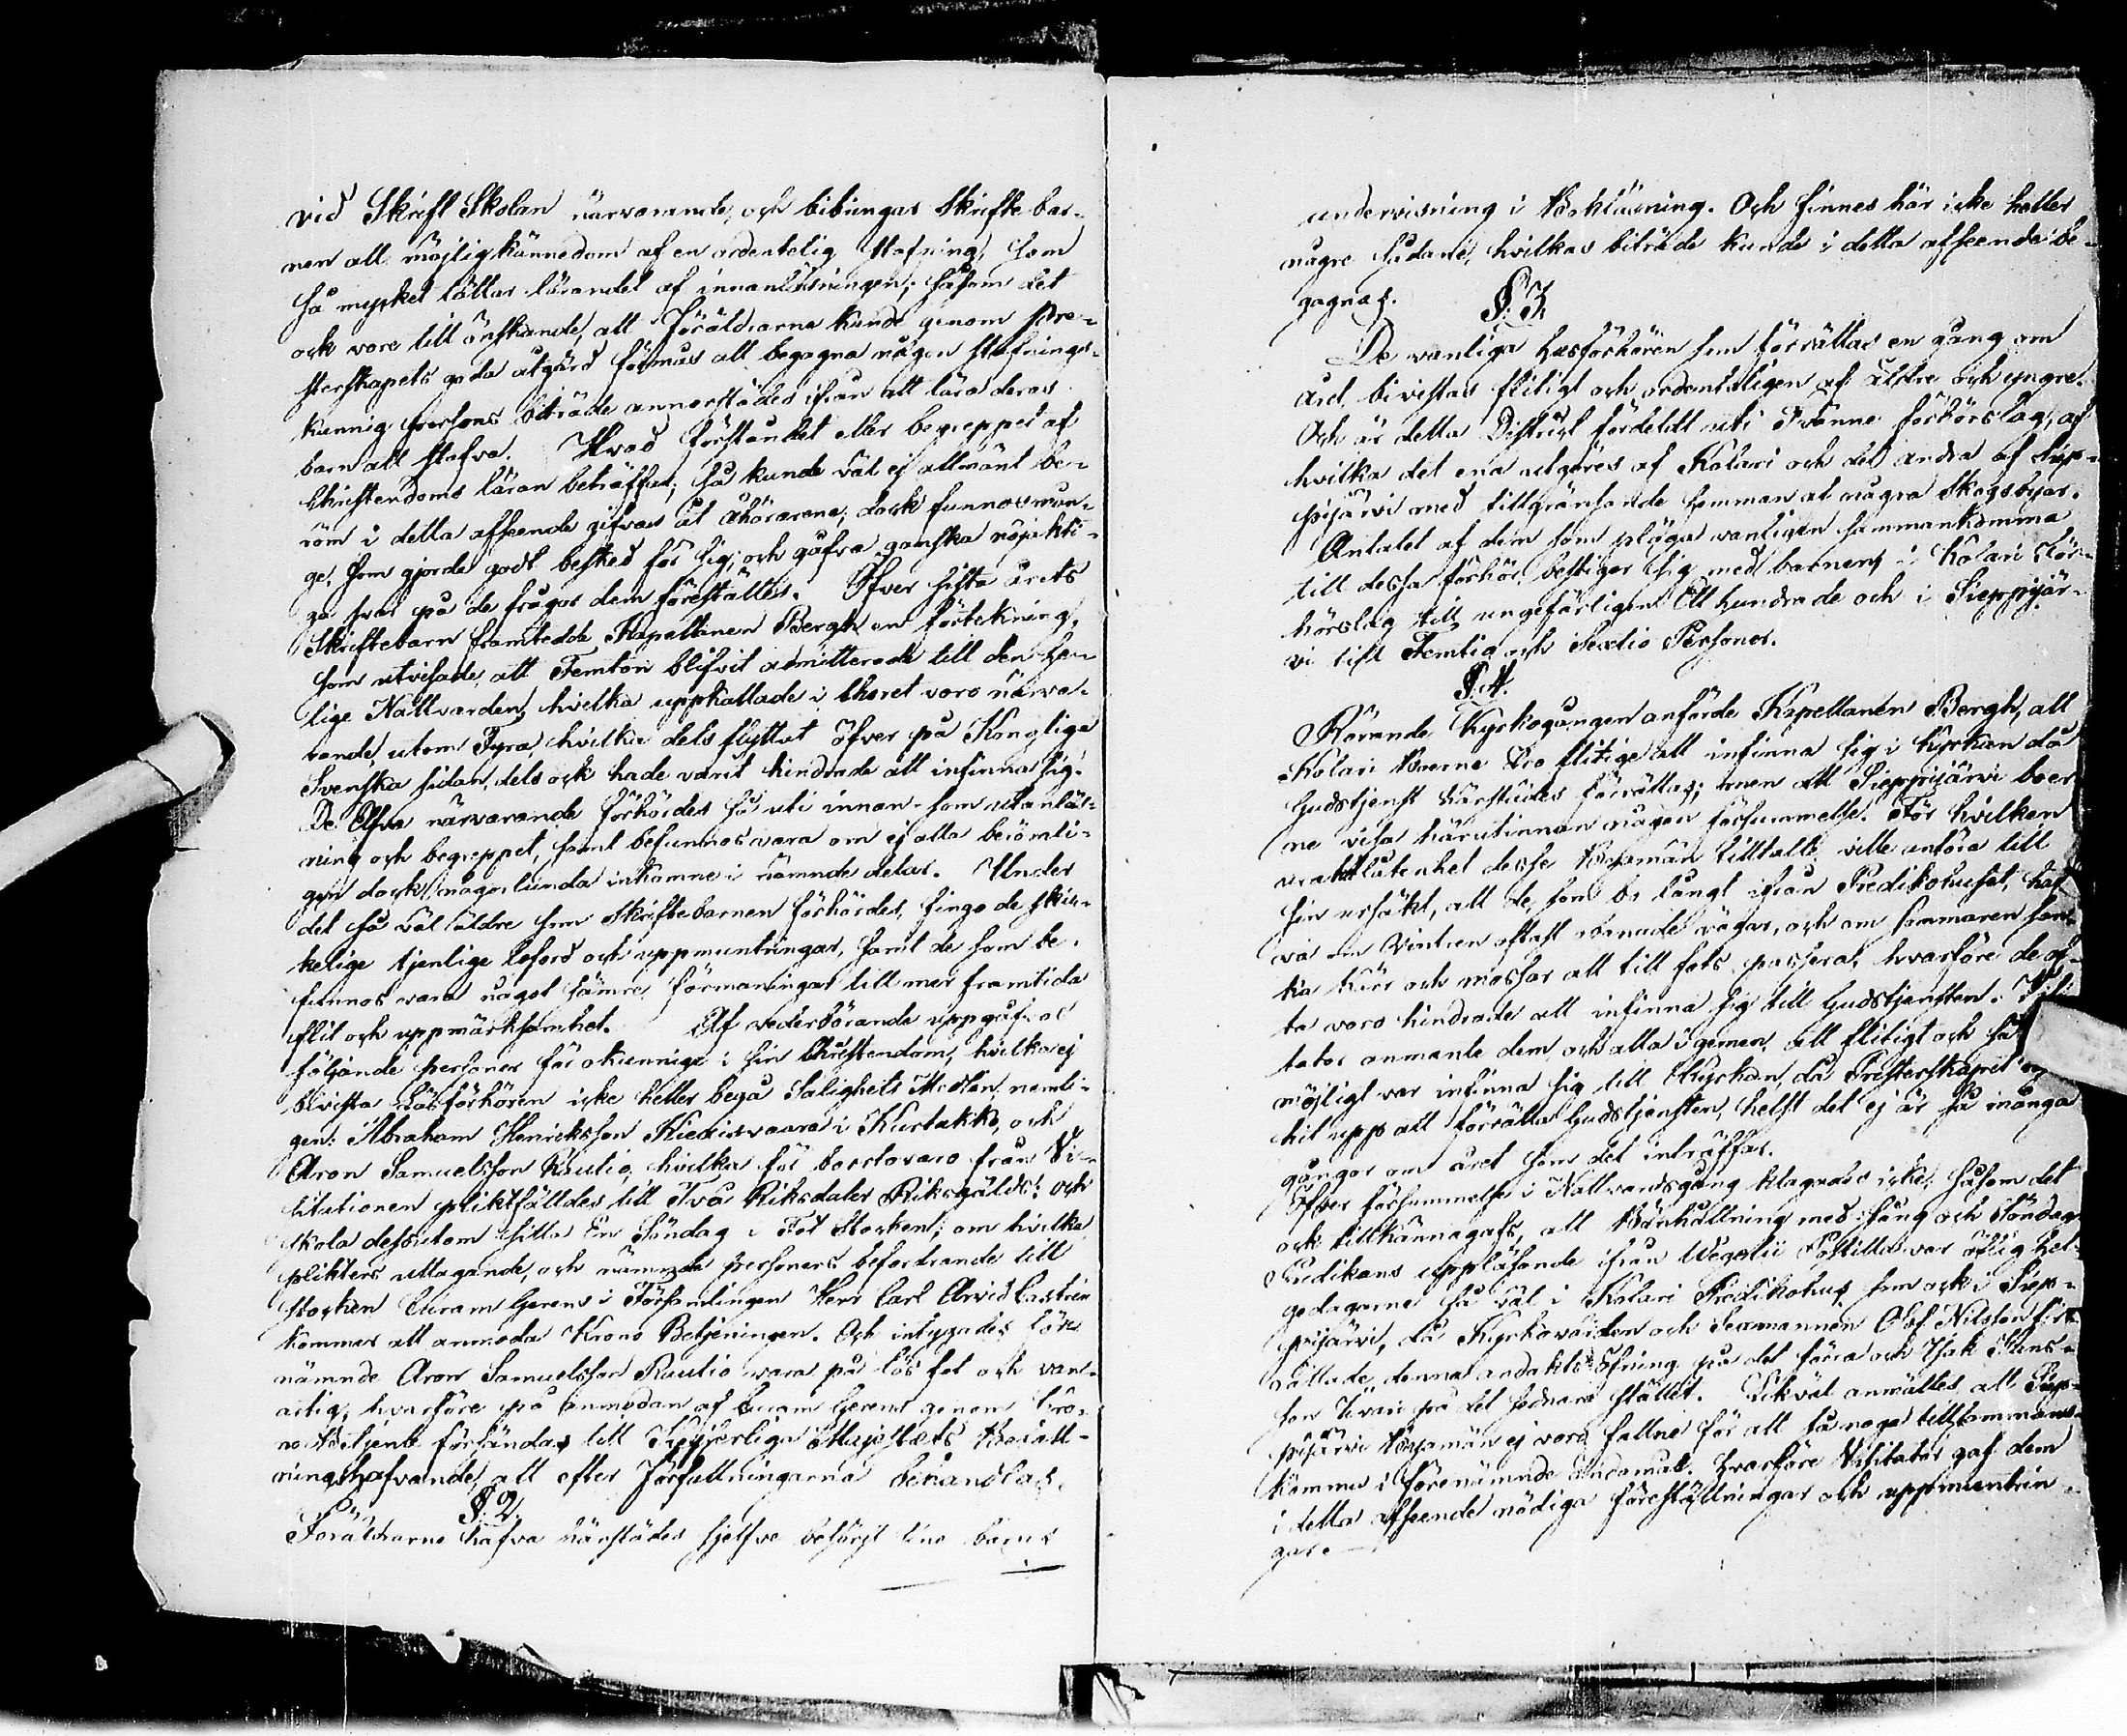 vid Skrift Skolan närvarande, och bibringas Skriftebar-
nen all möjlig kännedom af en ordentelig stafning, som
så mycket lättar lärandet af innanläsningen; såsom det
ock vore till önskande, att Föräldrarne kunde genom Pre-
sterskapets goda åtgärd förmås att begagna någon stafnings-
kunnig persons biträde annorstädes ifrån att lära deras
barn att stafva. Hvad förståndet eller begreppet af
Christendoms läran beträffar, så kunde väl ej allmänt be-
röm i detta afseende gifvas åt åhörarene, dock funnos mån-
ge, som gjorde godt besked för sig, och gåfvo ganska nöjakti-
ga svar på de frågor dem föreställtes. Öfver sista årets
Skriftebarn framtedde Kapellanen Bergh en förtekning,
som utvisade, att Femton blifvit admitterade till den he-
liga Nattvarden, hvilka uppkallade i Choret voro närva-
rande, utom Fyra, hvilka dels flyttat öfver på Kongliga
Svenska sidan, dels ock hade varit hindrade att infinna sig.
De Elfva närvarande förhördes så uti innan- som utanläs-
ning och begreppet, samt befunnos vara om ej alla berömli-
gen dock någorlunda inkomne i nämnde delar. Under
det så väl äldre som Skriftebarnen förhördes, fingo de skic-
kelige tjenlige loford och uppmuntringar, samt de som be-
funnos vara något sämre, förmaningar till mer framtida
flit och uppmärksamhet. Af vederbörande uppgåfvos
följande personer för okunnige i sin Christendom, hvilka ej
bivista Läsförhören icke heller begå Salighets Medlen, nemli-
gen: Abraham Henricksson Kiedisvaara i Kurtakko, och
Aron Samuelsson Rautio, hvilka för bortovaro från Vi-
sitationen pliktfälldes till Två Riksdaler Riksgälds; och
skola dessutom sitta En Söndag i Fot Stocken; om hvilka
plikters uttagande, och nämnde personers befordrande till
stocken Curam Gerens i Församlingen Herr Carl Arvid Castrén
kommer att anmoda Krono Betjeningen. Och intygades för-
nämnde Aron Samuelsson Rautio vara på lös fot och van-
artig, hvarföre på anmodan af Curam Gerens genom Cro-
no Betjent försändas till Kejserliga Majestæts Befall-
ningshafvande, att efter Författningarna behandlas.
§. 2.
Föräldrarne hafva härstädes sjelfve besörjt sine barns
undervisning i Bokläsning. Och finnes här icke heller
någre sådane, hvilkas biträde kunde i detta afseende be-
gagnas.
§. 3.
De vanliga Läsförhören som förrättas en gång om
året, bivistas flitigt och ordenteligen af äldre och yngre.
Och är detta District fördeldt uti Tvänne förhörslag, af
hvilka det ena utgöres af Kolari och det andra af Siep-
pijärvi med tillgränsande hemman af några Skogsbyar.
Antalet af dem som pläga vanligen sammankomma
till dessa förhör, bestiger sig med barnen i Kolari För-
hörslag till ungefärligen Ett hundrade och i Sieppijär-
vi till Femtio och Sextio Personer.
§. 4.
Rörande Kyrkogången anförde Kapellanen Bergh, att
Kolari Boerne äro flitige att infinna sig i Kyrkan då
Gudstjenst härstädes förrättas; men att Sieppijärvi boer-
ne visa härutinnan någon försummelse. För hvilken
uraktlåtenhet desse Byamän tilltalte ville anföra till
sin ursäkt, att de, som bo långt ifrån Predikohuset, haf
va om Vintren oftast obanade vägar, och om sommaren san-
ka kärr och mossar att till fots passera, hvarföre de of-
ta voro hindrade att infinna sig till Gudstjensten.
tator anmante dem och alla i gemen, att flitigt och så
möjligt var infinna sig till Kyrkan, då Presterskapet
hit upp att förrätta Gudstjensten, helst det ej är så många
gångor om året som det inträffar.
Öfver försummelse i Nattvardsgång klagades icke, såsom det
ock tillkännagafs, att Bönhållning med sång och Söndags
Predikans uppläsande ifrån Wegelii Postilla var öflig Hel-
gedagarne så väl i Kolari Predikohus, som ock i Siep-
pijärvi, då Kyrkovärden och Sexmannen Olof Nilsson för-
rättade denna andakts öfning på det förra och Isak Hans-
son Uvari på det sednare stället. Likväl anmältes, att Siep-
pijärvi Byamän ej voro fallne för att så noga tillsammans-
komma i förenämnde ändamål. Hvarföre Visitator gaf dem
i detta afseende nödiga föreställningar och uppmuntrin-
gar.